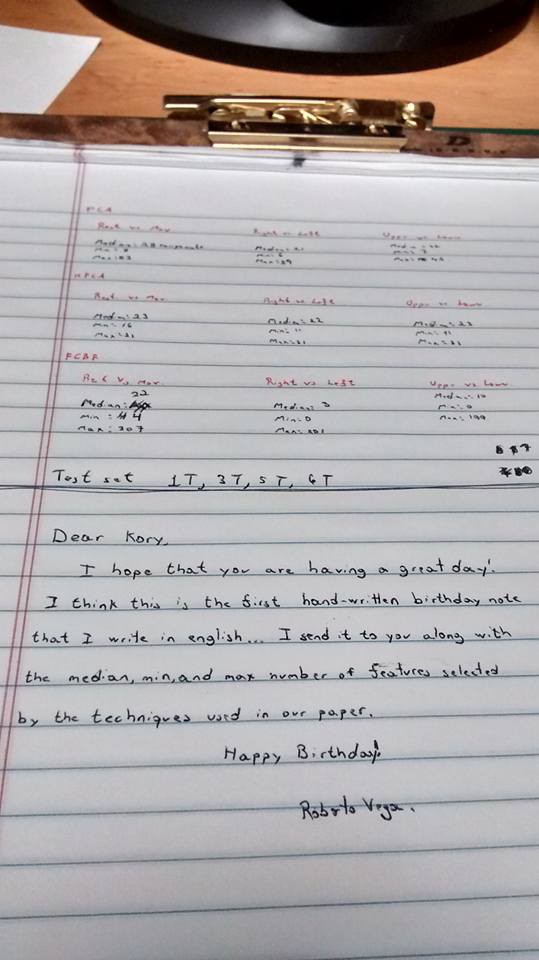 PCA
Rest vs Mov Right vs Left Upper vs Lower
Median: Median: 21 Median: 22
Min: Min: 6 Min: 7
Max: 53 Max: 39 Max:
KPCA
Rest vs Mov. Right vs Left Upper vs Lower
Median: 23 Median: 22 Median: 23
Min: 16 Min: 11 Min: 11
Max: 31 Max: 31 Max: 31
FCBF
Rest vs Mov. Right vs Left Upper vs Lower
Median: 22 Median: 3 Median: 10
Min: 4 Min: 0 Min: 0
Max: 207 Max: Max: 199
Test set 1T, 3T, 5T, 6T
Dear Kory,
I hope that you are having a great day!
I think this is the first hand-written birthday note
that I write in english... I send it to you along with
the median, min, and max number of features selected
by the techniques used in our paper.
Happy Birthday!
Roberto Vega.